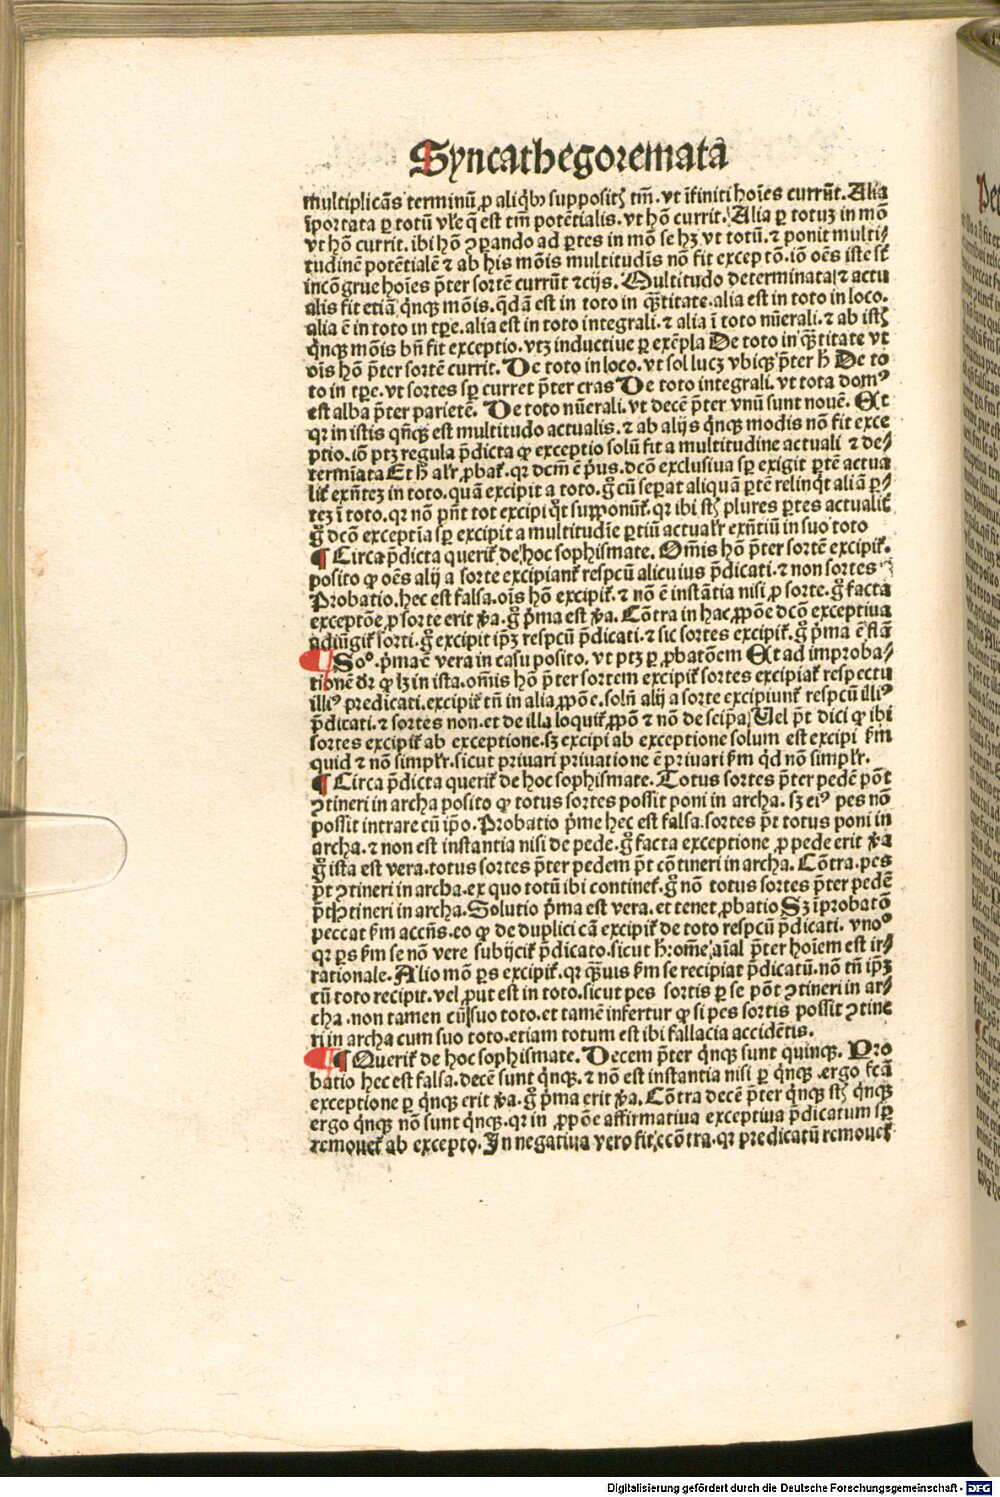 Syncathegoremata
multiplicãs terminũ ꝓ aliqͥbꝰ suppositꝭ tm̃. vt ĩfiniti hoĩes currũt. Alia
ĩportata ꝑ totũ vl̃e q̃ est tm̃ potẽtialis. vt hõ currit. Alia ꝑ totuz in mõ
vt hõ currit. ibi hõ ꝯꝑando ad ꝑtes in mõ se hꝫ vt totũ. ⁊ ponit multi/
tudinẽ potẽtialẽ ⁊ ab his mõis multitudĩs nõ fit exceptõ. iõ oẽs iste st̃
incõgrue hoĩes p̃ter sortẽ currũt ⁊cijs. Multitudo determinata ⁊ actu
alis fit etiã qͥnqꝫ mõis. q̃dã est in toto in q̃ꝫtitate. alia est in toto in loco.
alia ẽ in toto in tꝑe. alia est in toto integrali. ⁊ alia ĩ toto nũerali. ⁊ ab istꝭ
qͥnqꝫ mõis bñ fit exceptio. vtꝫ inductiue ꝑ exẽpla De toto in q̃ꝫtitate vt
oĩs hõ p̃ter sortẽ currit. De toto in loco. vt sol lucꝫ vbiqꝫ p̃ter h̃ De to
to in tꝑe. vt sortes sꝑ curret p̃ter cras De toto integrali. vt tota domꝰ
est alba p̃ter parietẽ. De toto nũerali. vt decẽ p̃ter vnũ sunt nouẽ. Et
qꝛ in istis qñqꝫ est multitudo actualis. ⁊ ab alijs qͥnqꝫ modis nõ fit exce
ptio. iõ ptꝫ regula p̃dicta ꝙ exceptio solũ fit a multitudine actuali ⁊ de/
termĩata Et h̃ al̃r ꝓbat̃. qꝛ dcm̃ ẽ pͥus. dcõ exclusiua sꝑ exigit ꝑtẽ actua
lit̃ exñtez in toto. quã excipit a toto. g̊ cũ seꝑat aliquã ꝑtẽ relinqͥt aliã ꝑ/
tez ĩ toto. qꝛ nõ pñt tot excipi qͥt supponũt̃. qꝛ ibi stꝭ plures ꝑtes actualit̃
g̊ dcõ exceptĩa sꝑ excipit a multitudĩe ꝑtiũ actual̃r exñtiũ in suo toto
¶ Circa p̃dicta querit̃ de hoc sophismate. Om̃is hõ p̃ter sortẽ excipit̃.
posito ꝙ oẽs alij a sorte excipiant̃ respcũ alicuius p̃dicati. ⁊ non sortes
Probatio. hec est falsa. oĩs hõ excipit̃. ⁊ nõ ẽ instãtia nisi ꝓ sorte. g̊ facta
exceptõe ꝓ sorte erit ṽa. g̊ pͥma est ṽa. Cõtra in hac ꝓpõe dcõ exceptiua
adiũgit̃ sorti. g̊ excipit ip̃ꝫ respcũ p̃dicati. ⁊ sic sortes excipit̃. g̊ pͥma ẽ fl̃a
¶ Soº. pͥma ẽ vera in casu posito. vt ptꝫ ꝑ ꝓbatõem Et ad improba/
tionẽ dr̃ ꝙ lꝫ in ista. om̃is hõ p̃ter sortem excipit̃ sortes excipiat̃ respectu
illiꝰ predicati. excipit̃ tñ in alia ꝓpõe. solũ alij a sorte excipiunt̃ respcũ illiꝰ
p̃dicati. ⁊ sortes non. et de illa loquit̃ ꝓpõ ⁊ nõ de seip̃a Uel p̃t dici ꝙ ibi
sortes excipit̃ ab exceptione. sꝫ excipi ab exceptione solum est excipi ẜm
quid ⁊ nõ simpl̃r. sicut priuari priuatione ẽ priuari ẜm qͥd nõ simpl̃r.
¶ Circa p̃dicta querit̃ de hoc sophismate. Totus sortes p̃ter pedẽ põt
ꝯtineri in archa posito ꝙ totus sortes possit poni in archa. sꝫ eiꝰ pes nõ
possit intrare cũ ip̃o. Probatio pͥme hec est falsa. sortes p̃t totus poni in
archa. ⁊ non est instantia nisi de pede. g̊ facta exceptione ꝓ pede erit ṽa
g̊ ista est vera. totus sortes p̃ter pedem p̃t cõtineri in archa. Cõtra. pes
p̃t ꝯtineri in archa. ex quo totũ ibi continet̃. g̊ nõ totus sortes p̃ter pedẽ
p̃t ꝯtineri in archa. Solutio pͥma est vera. et tenet ꝓbatio Sꝫ ĩprobatõ
peccat ẜm accñs. eo ꝙ de duplici cã excipit̃ de toto respcũ p̃dicati. vnoº
qꝛ ꝑs ẜm se nõ vere subijcit̃ p̃dicato. sicut h̃. om̃e aĩal p̃ter hoĩem est ir/
rationale. Alio mõ ꝑs excipit̃. qꝛ q̃ꝫuis ẜm se recipiat p̃dicatũ. nõ tñ ip̃ꝫ
cũ toto recipit. vel ꝓut est in toto. sicut pes sortis ꝑ se põt ꝯtineri in ar/
cha. non tamen cũ suo toto. et tamẽ infertur ꝙ si pes sortis possit ꝯtine
ri in archa cum suo toto. etiam totum est ibi fallacia accidẽtis.
¶ Querit̃ de hoc sophismate. Decem p̃ter qͥnqꝫ sunt quinqꝫ. Pro
batio hec est falsa. decẽ sunt qͥnqꝫ. ⁊ nõ est instantia nisi ꝑ qͥnqꝫ. ergo fcã
exceptione ꝑ qͥnqꝫ erit ṽa. g̊ pͥma erit ṽa. Cõtra decẽ p̃ter qͥnqꝫ stꝭ qͥnqꝫ
ergo qͥnqꝫ nõ sunt qͥnqꝫ. qꝛ in ꝓpõe affirmatiua exceptiua p̃dicatum sꝑ
remouet̃ ab excepto. In negatiua vero fit ecõtra. qꝛ predicatũ remouet̃
Digitalisierung gefördert durch die Deutsche Forschungsgemeinschaft - DFG